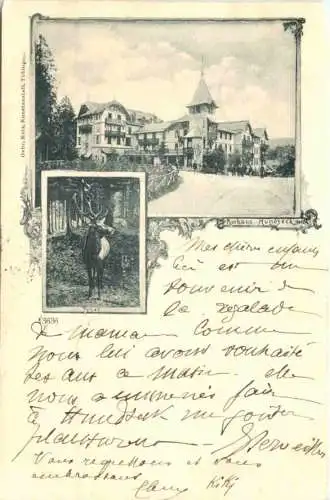 Gebr. Metz, Kunstanstalt, Tübingen.
Kurhaus - Hundseck
5434
Mes chères enfants
Ceci est un
souvenir de
la régalade
de maman comme
nous lui avons souhaité
ses ans ce matin. elle
nous a emmenés
à Hundseck un goûter
plantureux
Vous regrettons et vous
embrassons